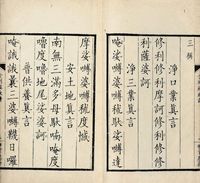 三稱
淨口業真言
修利修利摩訶修利修修
利薩婆訶
淨三業真言
唵娑嚩婆嚩秫馱娑嚩達
摩娑嚩婆嚩秫度憾
安土地真言
南無三滿多母馱喃唵度
嚕度嚕地尾娑婆訶
普供養真言
唵誐誐曩三婆嚩韈日囉